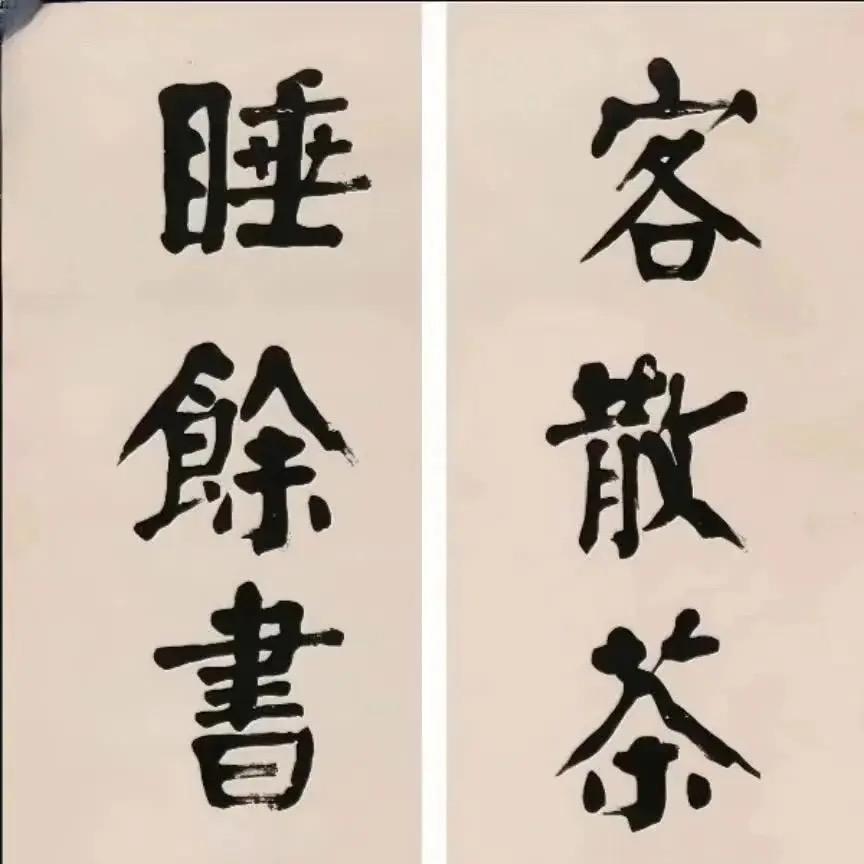 客散茶
睡餘書